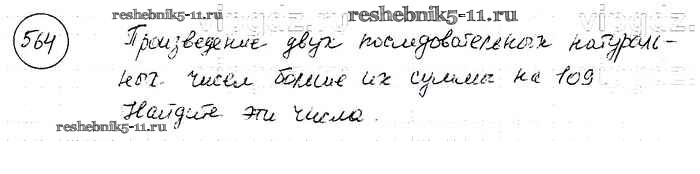 reshebnik5-11.ru
564
Произведение двух последовательных натураль-
ных чисел больше их суммы на 109
Найдите эти числа.
reshebnik5-11.ru
reshebnik5-11.ru